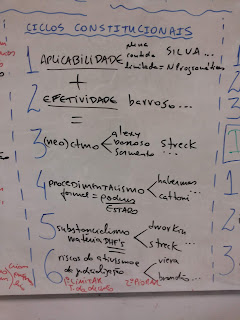 CICLOS CONSTITUCIONAIS
plena
1 APLICABILIDADE contida SILVA ...
limitada = N Programátic
+
2 EFETIVIDADE barroso ...
=
alexy
3 (neo)ctmo barroso streck
sarmento ...
4 procedimentalismo habermas
formal = poderes cattoni ...
ESTADO
5 substancialismo dworkin
materia DHF's streck ...
6 riscos do ativismo e vieira
da judicialização brandão ...
1º LIMITAR 2º
T. da decisão